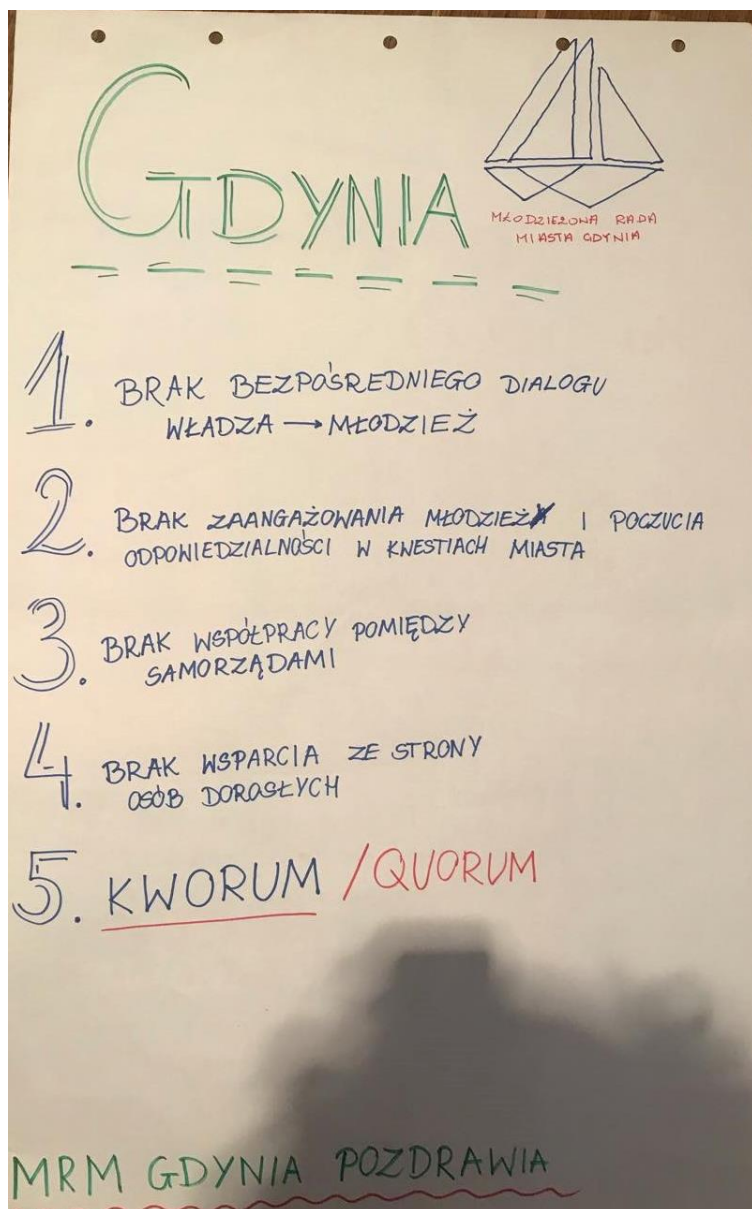 GDYNIA
MŁODZIEŻOWA RADA
MIASTA GDYNIA
1. BRAK BEZPOŚREDNIEGO DIALOGU
WŁADZA → MŁODZIEŻ
2. BRAK ZAANGAŻOWANIA MŁODZIEŻY I POCZUCIA
ODPOWIEDZIALNOŚCI W KWESTIACH MIASTA
3. BRAK WSPÓŁPRACY POMIĘDZY
SAMORZĄDAMI
4. BRAK WSPARCIA ZE STRONY
OSÓB DOROSŁYCH
5. KWORUM / QUORUM
MRM GDYNIA POZDRAWIA